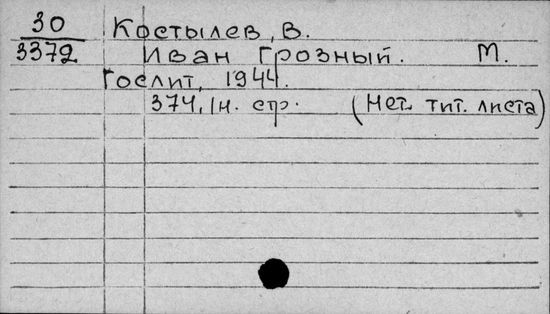 30 Костылев, В.
3372 Иван Грозный. М.
Гослит, 1944.
374, 1н. стр. (Нет тит. листа)